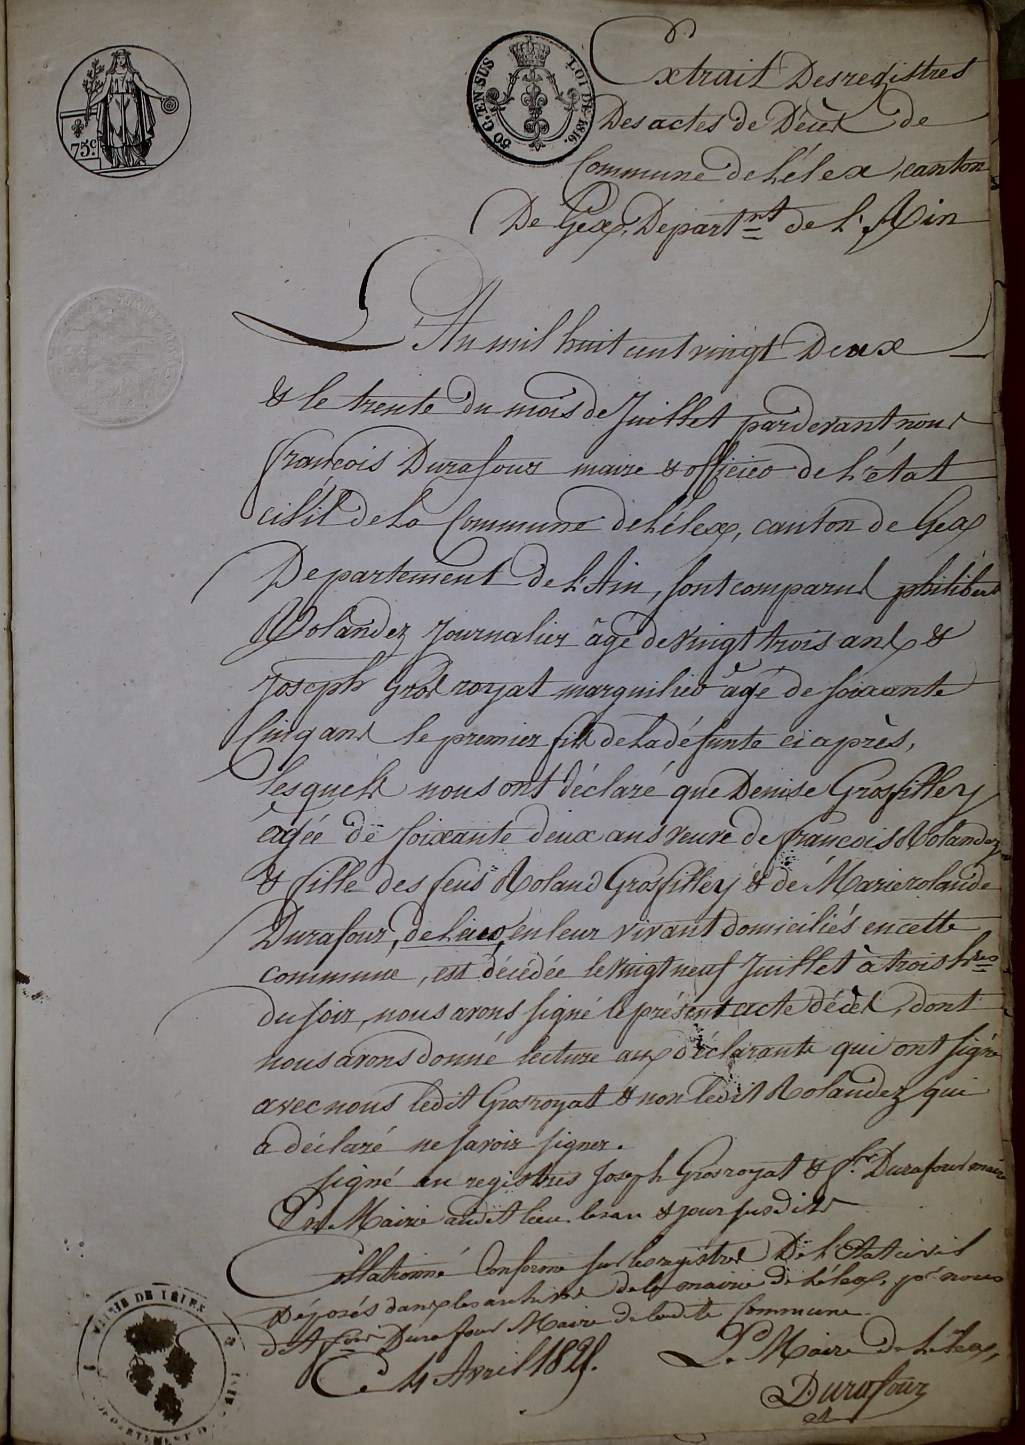 75.c
50 C. EN SUS
LOI DE 1816.
Extrait Des registres
Des actes de Décès de
Commune de Lélex, canton
De Gex, Departnt de L'Ain
L'An mil huit cent vingt Deux
& le trente du mois de Juillet pardevant nous
françois Durafour maire & officier de L'état
civil de La Commune de Lélex, canton de Gex
Departement de L'Ain, sont comparus philibert
Rolandez Journalier âgé de vingt trois ans &
Joseph Gros royat marguilier âgé de soixante
Cinq ans le premier fils de La défunte ci après,
lesquels nous ont déclaré que Denise Grosfilley
âgée de soixante deux ans veuve de françois Rolandez
& fille des feus Roland Grosfilley & de Marie rolande
Durafour, en leur vivant domiciliés en cette
commune, est décédée le vingt neuf Juillet à trois hres
du soir, nous avons signé le présent acte décès, dont
nous avons donné lecture aux déclarants qui ont signé
avec nous ledit Grosroyat & non ledit Rolandez qui
a déclaré ne savoir signer.
signé au registres Joseph Grosroyat & fs. Durafour maire
En Mairie audit lieu les an & jour susdits
Collationné Conforme sur les registres De L'Etat civil
Déposés dans les archives de la mairie de Lélex, pr nous
dit fçois Durafour Maire de ladite Commune
Ce 4 Avril 1825.
Le Maire de Lélex,
Durafour
MAIRIE DE LELEX
DEPARTEMENT DE L'AIN